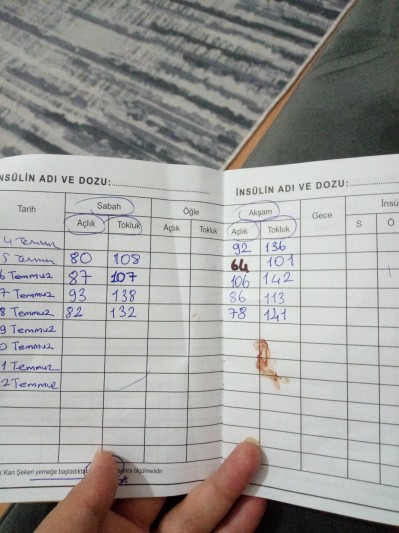 NSÜLİN ADI VE DOZU:
İNSÜLİN ADI VE DOZU:
Tarih Sabah Öğle Akşam Gece İnsü
Açlık Tokluk Açlık Tokluk Açlık Tokluk S Ö
4 Temmuz 92 136
5 Temmuz 80 108 64 101
6 Temmuz 87 107 106 142
7 Temmuz 93 138 86 113
8 Temmuz 82 132 78 141
9 Temmuz
0 Temmuz
1 Temmuz
2 Temmuz
Kan Şekeri yemeğe başladıktan sonra ölçülmelidir.